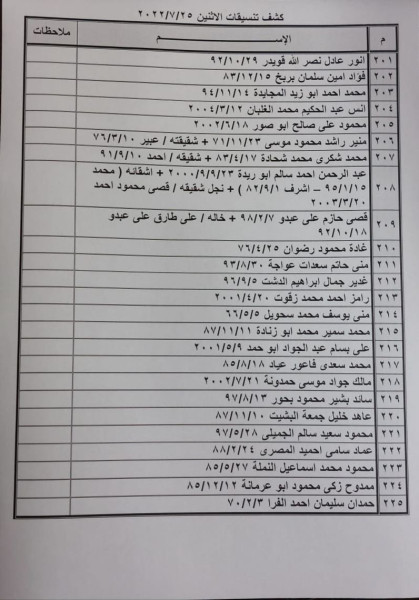 كشف تنسيقات الاثنين ٢٠٢٢/٧/٢٥
م الإســـم ملاحظات
٢٠١ انور عادل نصر الله قويدر ٩٢/١٠/٢٩
٢٠٢ فؤاد امين سلمان بربخ ٨٣/١٢/١٥
٢٠٣ محمد احمد ابو زيد المجايدة ٩٤/١١/١٤
٢٠٤ انس عبد الحكيم محمد الغلبان ٢٠٠٤/٣/١٢
٢٠٥ محمود على صالح ابو صور ٢٠٠٢/٦/١٨
٢٠٦ منير راشد محمود موسى ٧١/١١/٢٣ + شقيقته / عبير ٧٦/٣/١٠
٢٠٧ محمد شكرى محمد شحادة ٨٣/٤/١٧ + شقيقه / احمد ٩١/٩/١٠
٢٠٨ عبد الرحمن احمد سالم ابو ريدة ٢٠٠٠/٩/٢٣ + اشقائه ( محمد
٩٥/١/١٥ – اشرف ٨٢/٩/١ ) + نجل شقيقه / قصى محمود احمد
٢٠٠٣/٣/٢٠
٢٠٩ قصى حازم على عبدو ٩٨/٢/٧ + خاله / على طارق على عبدو
٩٢/١٠/١٨
٢١٠ غادة محمود رضوان ٧٦/٤/٢٥
٢١١ منى حاتم سعدات عواجة ٩٣/٨/٣٠
٢١٢ غدير جمال ابراهيم الدشت ٩٦/٩/٥
٢١٣ رامز احمد محمد زقوت ٢٠٠١/٤/٢٠
٢١٤ منى يوسف محمد سحويل ٦٦/٥/٥
٢١٥ محمد سمير محمد ابو زنادة ٨٧/١١/١١
٢١٦ على بسام عبد الجواد ابو حمد ٢٠٠١/٥/٩
٢١٧ محمد سعدى فاعور عياد ٨٥/٨/١٨
٢١٨ مالك جواد موسى حمدونة ٢٠٠٢/٧/٢١
٢١٩ سائد بشير محمود بحور ٩٧/٨/١٣
٢٢٠ عاهد خليل جمعة البشيت ٨٧/١١/١٠
٢٢١ محمود سعيد سالم الجميلى ٩٧/٥/٢٨
٢٢٢ عماد سامى احميد المصرى ٨٨/٢/٢٤
٢٢٣ محمود محمد اسماعيل النملة ٨٥/٥/٢٧
٢٢٤ ممدوح زكى محمود ابو عرمانة ٨٥/١٢/١٢
٢٢٥ حمدان سليمان احمد الفرا ٧٠/٢/٣